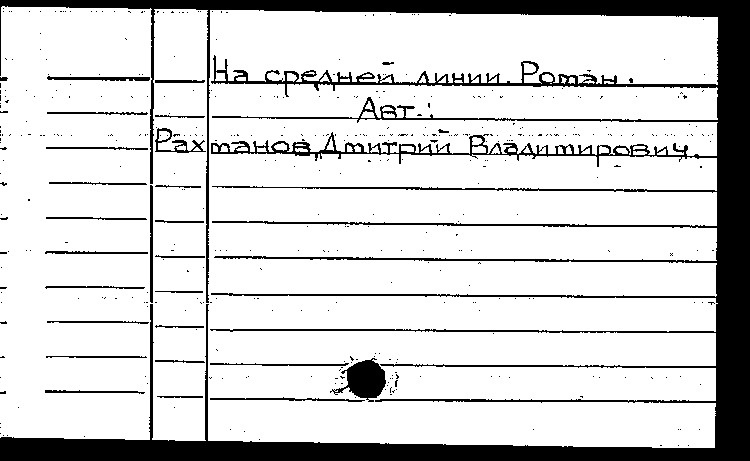 На средней линии. Роман.
Авт.:
Рахманов, Дмитрий Владимирович.